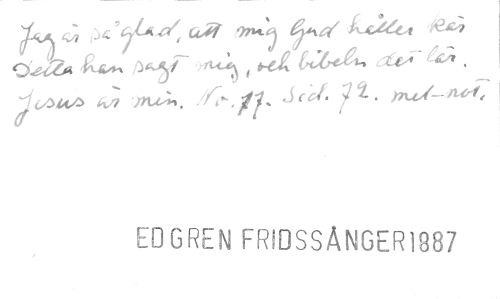 Jag är så glad, att mig Gud håller kär
Detta han sagt mig, och bibeln det lär.
Jesus är min. No. 77. Sid. 72. mel-not.
EDGREN FRIDSSÅNGER 1887